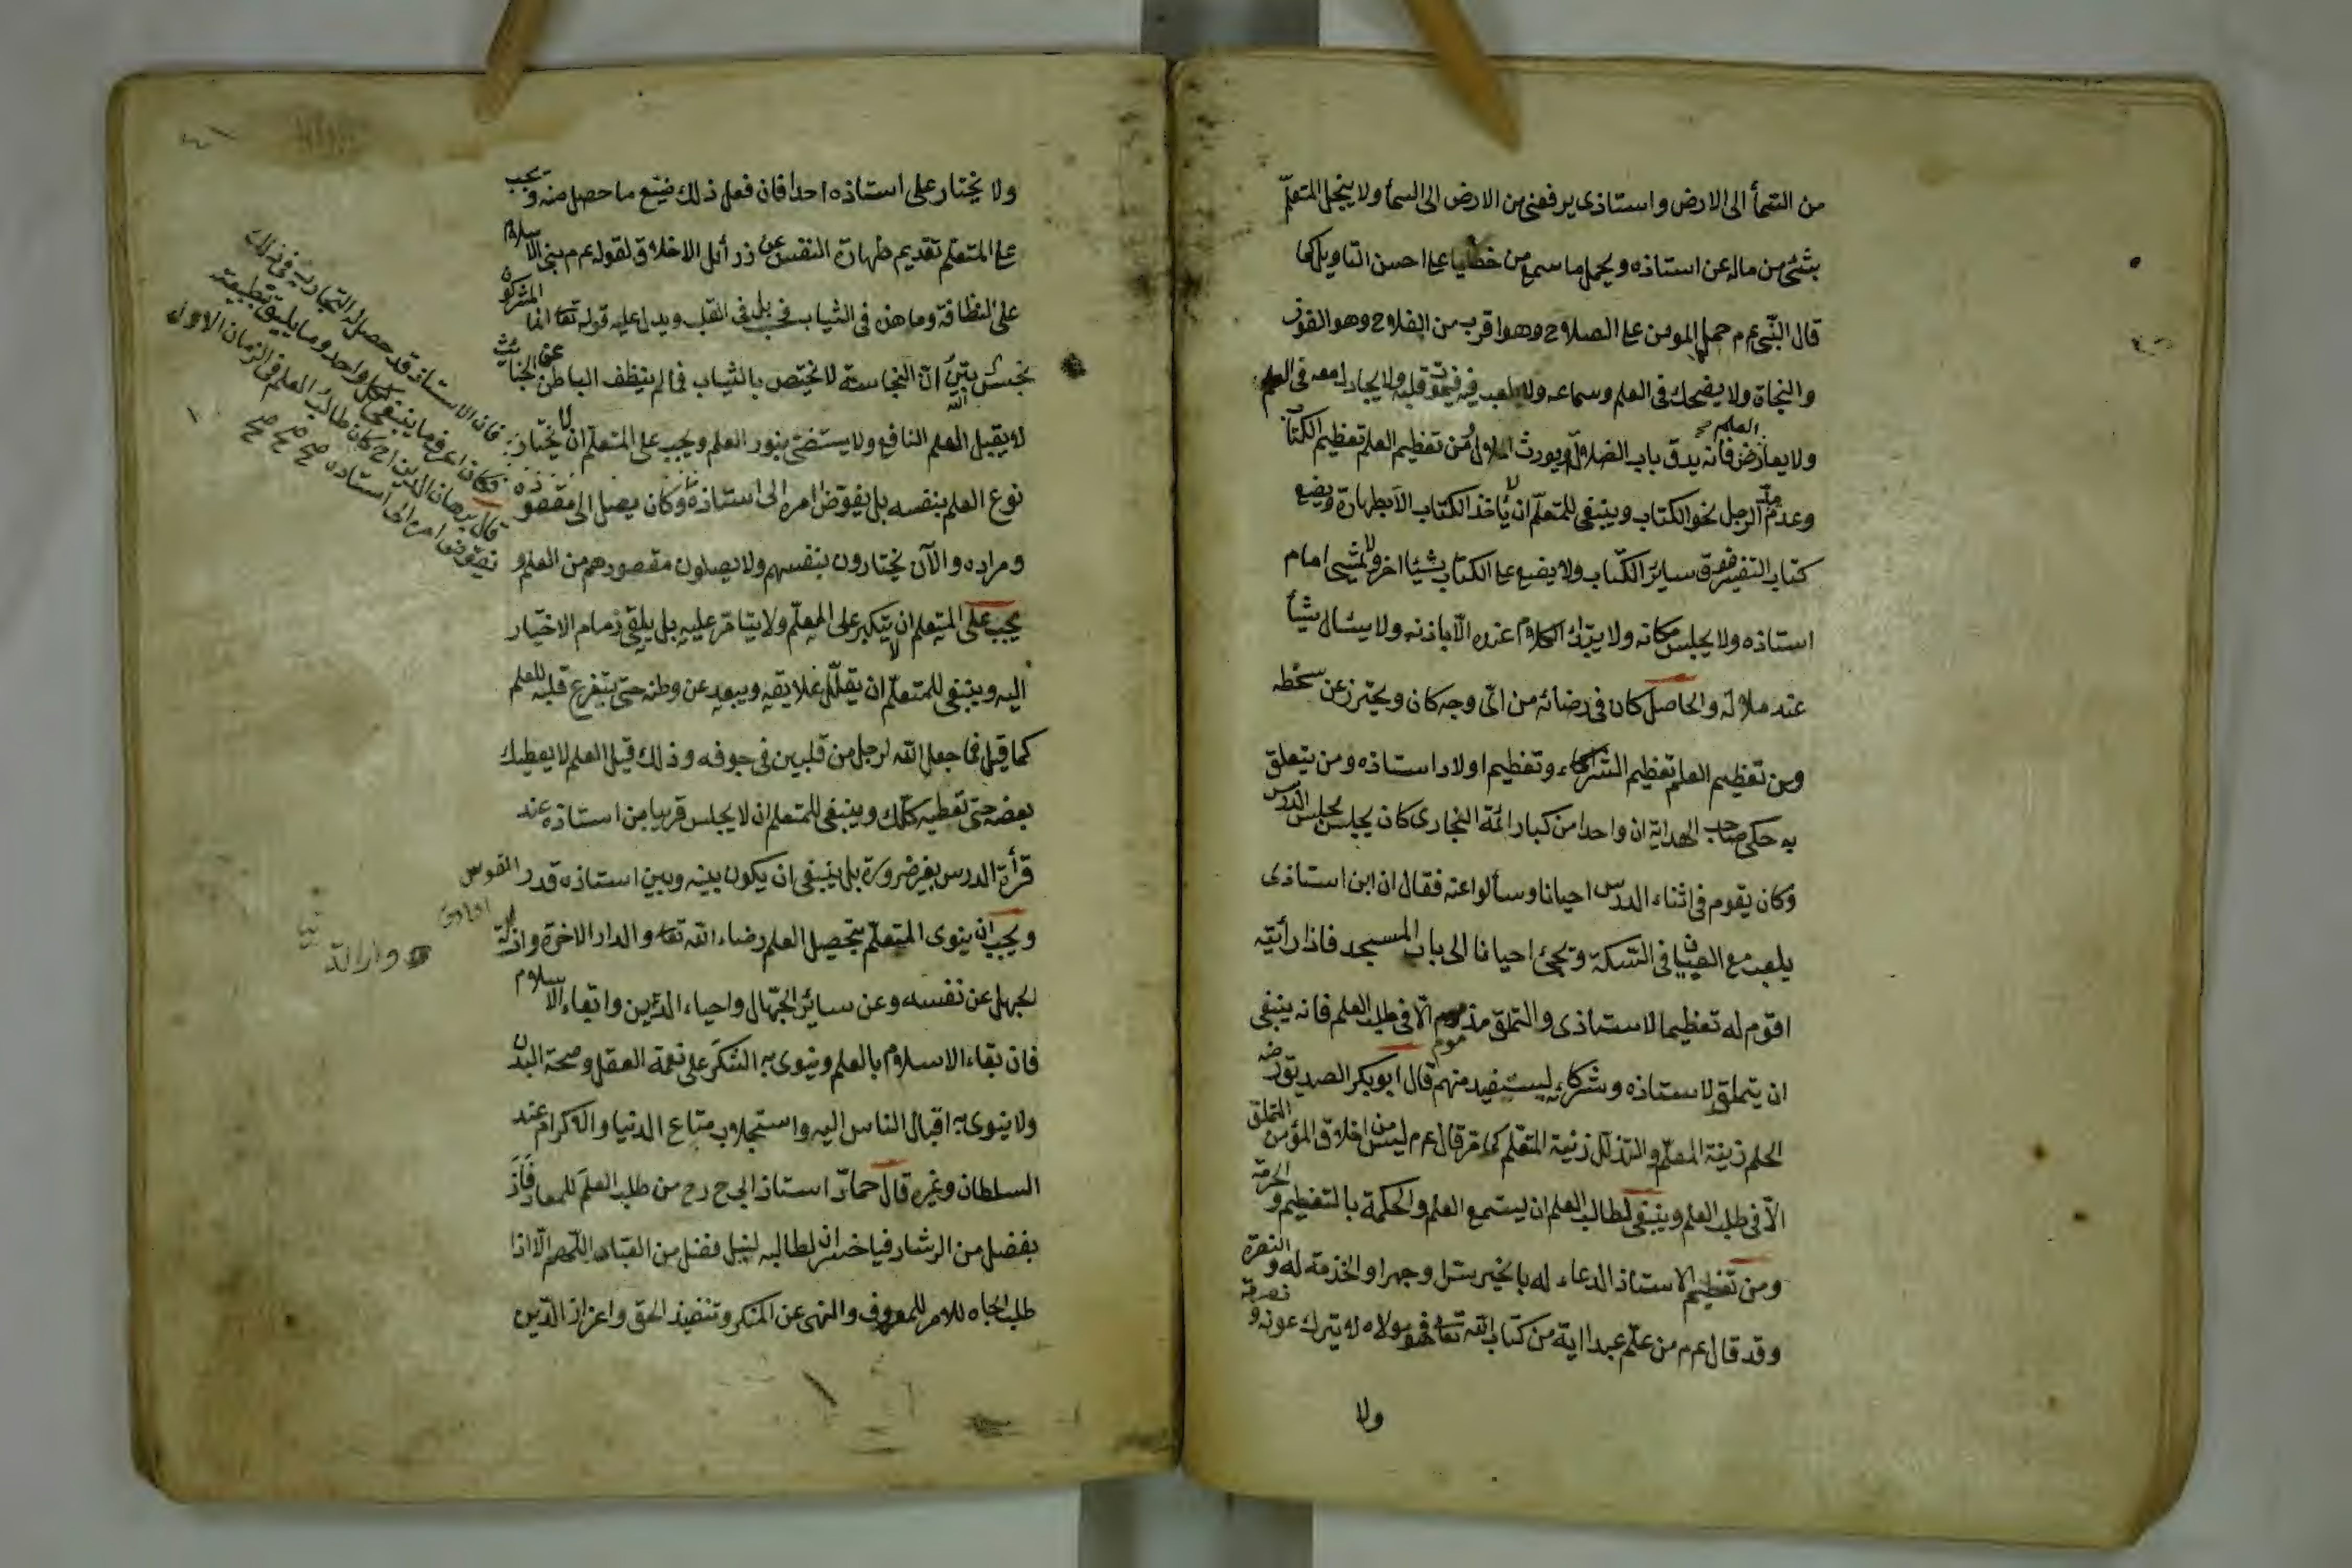 من السمأ الى الارض واستاذى يرفعنى من الارض الى السمأ ولا يبخل المتعلّم
بشئ من ماله عن استاذه ويحمل ما سمع من خطايا على احسن التاويل كما
قال النّبى عم م حمل المومن على الصلاح وهو اقرب من الفلاح وهو الفوز
والنجاة ولا يضحك فى العلم وسماعه ولا يلعب فيه فيموت قلبه ولا يجادل معه فى العلم
ولا يعارض فانه يدق باب الضلال ويورث الملال ومن تعظيم العلم تعظيم الكتاب
وعدم مدّ الرجل نحو الكتاب وينبغى للمتعلّم ان لا ياخذ الكتاب الا بطهارة ويضع
كتاب التفسير فوق سائر الكتاب ولا يضع على الكتاب شيئا اخر ولا يمشى امام
استاذه ولا يجلس مكانه ولا يبتدأ الكلام عنده الّا باذنه ولا يسئال شيأ
عند ملاله والحاصل كان فى رضائه من اىّ وجه كان ويحترز عن سخطه
ومن تعظيم العلم تعظيم الشركاء وتعظيم اولاد استاذه ومن يتعلق
به حكى صاحب الهداية ان واحدا من كبار ائمة البخارى كان يجلس مجلس الدرس
وكان يقوم فى اثناء الدرس احيانا وسألوا عنه فقال ان ابن استاذى
يلعب مع الصبيان فى السّكة وتجئ احيانا الى باب المسجد فاذا رأيته
اقوم له تعظيما لاستاذى والتملق مذموم الّا فى طلب العلم فانه ينبغى
ان يتملق لاستاذه وشركاءه ليستفيد منهم قال ابو بكر الصديق رض
الحلم زينة المعلّم والتذلّل زينة المتعلّم كما مرّ قال عم م ليس من اخلاق المؤمن التملق
الّا فى طلب العلم وينبغى لطالب العلم ان ليستمع العلم والحكمة بالتعظيم والحرمة
ومن تعظيم الاستاذ الدعاء له بالخير سرا وجهرا والخذمة له والنصرة
وقد قال عم م من علّم عبدا اية من كتاب الله تعا فهو مولاه لا يترك عونه و نصرته
ولا
ولا يختار على استاذه احدا فان فعل ذلك ضيّع ما حصل منه ويجب
على المتعلم تقديم طهارة النفس عن رذائل الاخلاق لقوله عم م بنى الاسلام
على النظافة وما هذه فى الثياب فحسب بل فى القلب ويدل عليه قوله تعا انما المشركون
نجس بيّن انّ النجاسة لا تختص بالثياب فما لم ينظف الباطن عن الخبائث
لا يقبل العلم النافع ولا يستضئ بنور العلم ويجب على المتعلّم ان لا يختار
نوع العلم بنفسه بل يفوّض امره الى استاذه وكان يصل الى مقصوده
ومراده والآن يختارون بنفسهم ولا يصلون مقصودهم من العلم و
يجب على المتعلم ان لا يتكبر على المعلّم ولا يتامّر عليه بل يلقى زمام الاختيار
اليه وينبغى للمتعلّم ان يقلّل علايقه ويبعد عن وطنه حتى يتفرغ قلبه للعلم
كما قيل فما جعل الله لرجل من قلبين فى جوفه وذلك قيل العلم لا يعطيك
بعضه حتى تعطيه كلّك وينبغى للمتعلم ان لا يجلس قريبا من استاذه عند
قرأة الدرس بغير ضرورة بل ينبغى ان يكون بينه وبين استاذه قدر القوس
ويجب ان ينوى المتعلّم بتحصيل العلم رضاء الله تعا والدار الاخرة وازالة
الجهل عن نفسه وعن سائر الجهّال واحياء الدّين وابقاء الاسلام
فان بقاء الاسلام بالعلم وينوى به الشكر على نعمة العقل وصحة البدن
ولا ينوى به اقبال الناس اليه واستجلاب متاع الدنيا والاكرام عند
السلطان وغيره قال حمّاد استاذ ابى ح رح من طلب العلم للمعاد فاز
بفضل من الرشاد فيا خسران لطالبه لنيل فضل من العباد اللّهم الّا اذا
طلب الجاه للامر للمعروف والنهى عن المنكر وتنفيذ الحق واعزاز الدّين
فان الاستاذ قد حصل التجارب فى ذلك
فكان اعرف ما ينبغى لكل واحد وما يليق بطبيعته
قال برهان الدين رح كان طالب العلم فى الزمان الاول
يفوّضوا امره الى استاده صح صح صح